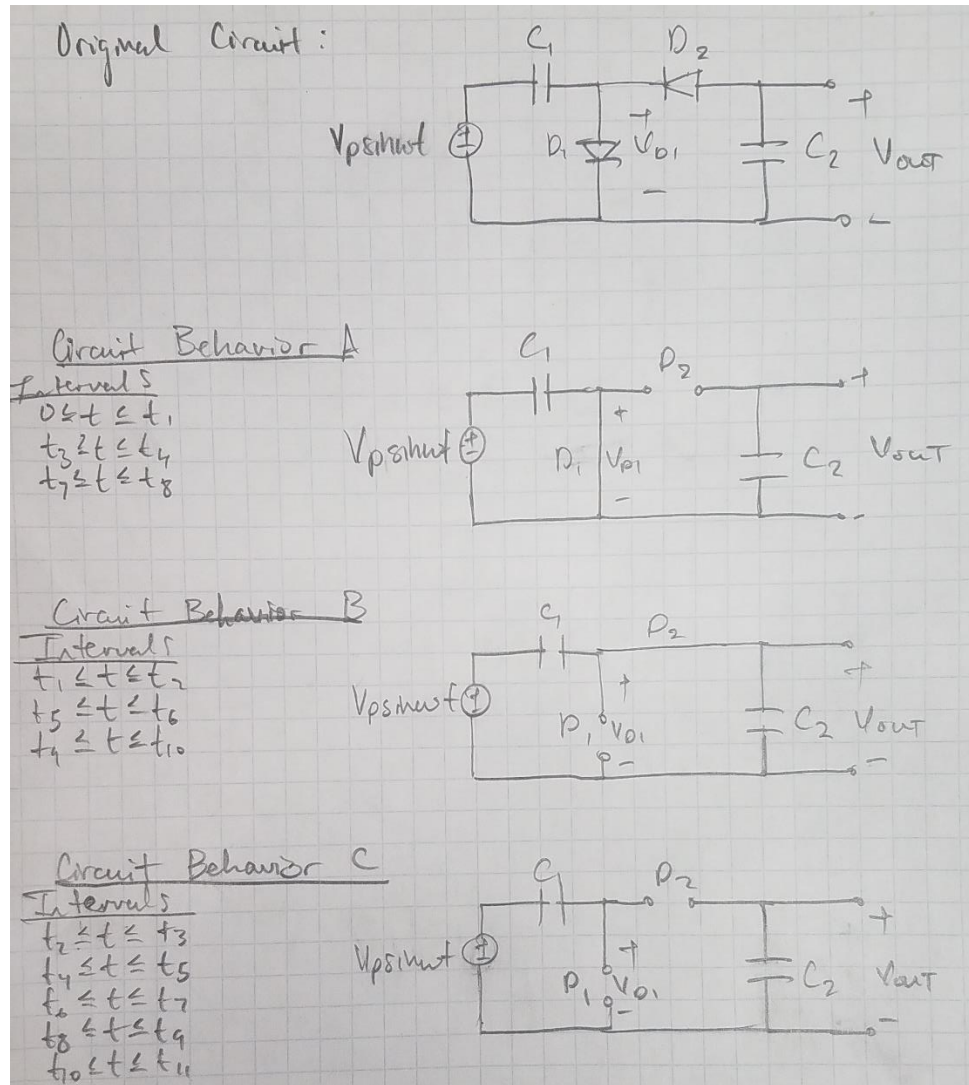 Original Circuit :
C₁
D₂
Vpsinωt
D₁
+
V_D1
-
C₂
+
V_OUT
-
Circuit Behavior A
Intervals
0 ≤ t ≤ t₁
t₃ ≤ t ≤ t₄
t₇ ≤ t ≤ t₈
C₁
D₂
Vpsinωt
D₁
+
V_D1
-
C₂
+
V_OUT
-
Circuit Behavior B
Intervals
t₁ ≤ t ≤ t₂
t₅ ≤ t ≤ t₆
t₉ ≤ t ≤ t₁₀
C₁
D₂
Vpsinωt
D₁
+
V_D1
-
C₂
+
V_OUT
-
Circuit Behavior C
Intervals
t₂ ≤ t ≤ t₃
t₄ ≤ t ≤ t₅
t₆ ≤ t ≤ t₇
t₈ ≤ t ≤ t₉
t₁₀ ≤ t ≤ t₁₁
C₁
D₂
Vpsinωt
D₁
+
V_D1
-
C₂
+
V_OUT
-